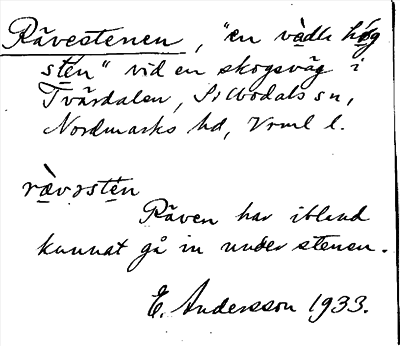 Rävestenen, "en vàdli họ́g
stẹn" vid en skogsväg i
Tvärdalen, Silbodals sn,
Nordmarks hd, Vrml l.
ræ̀vəstẹn
Räven har ibland
kunnat gå in under stenen.
E. Andersson 1933.